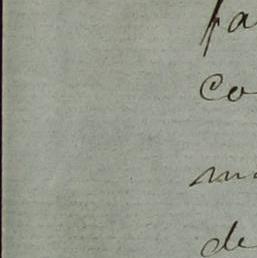 fa
co
m
de